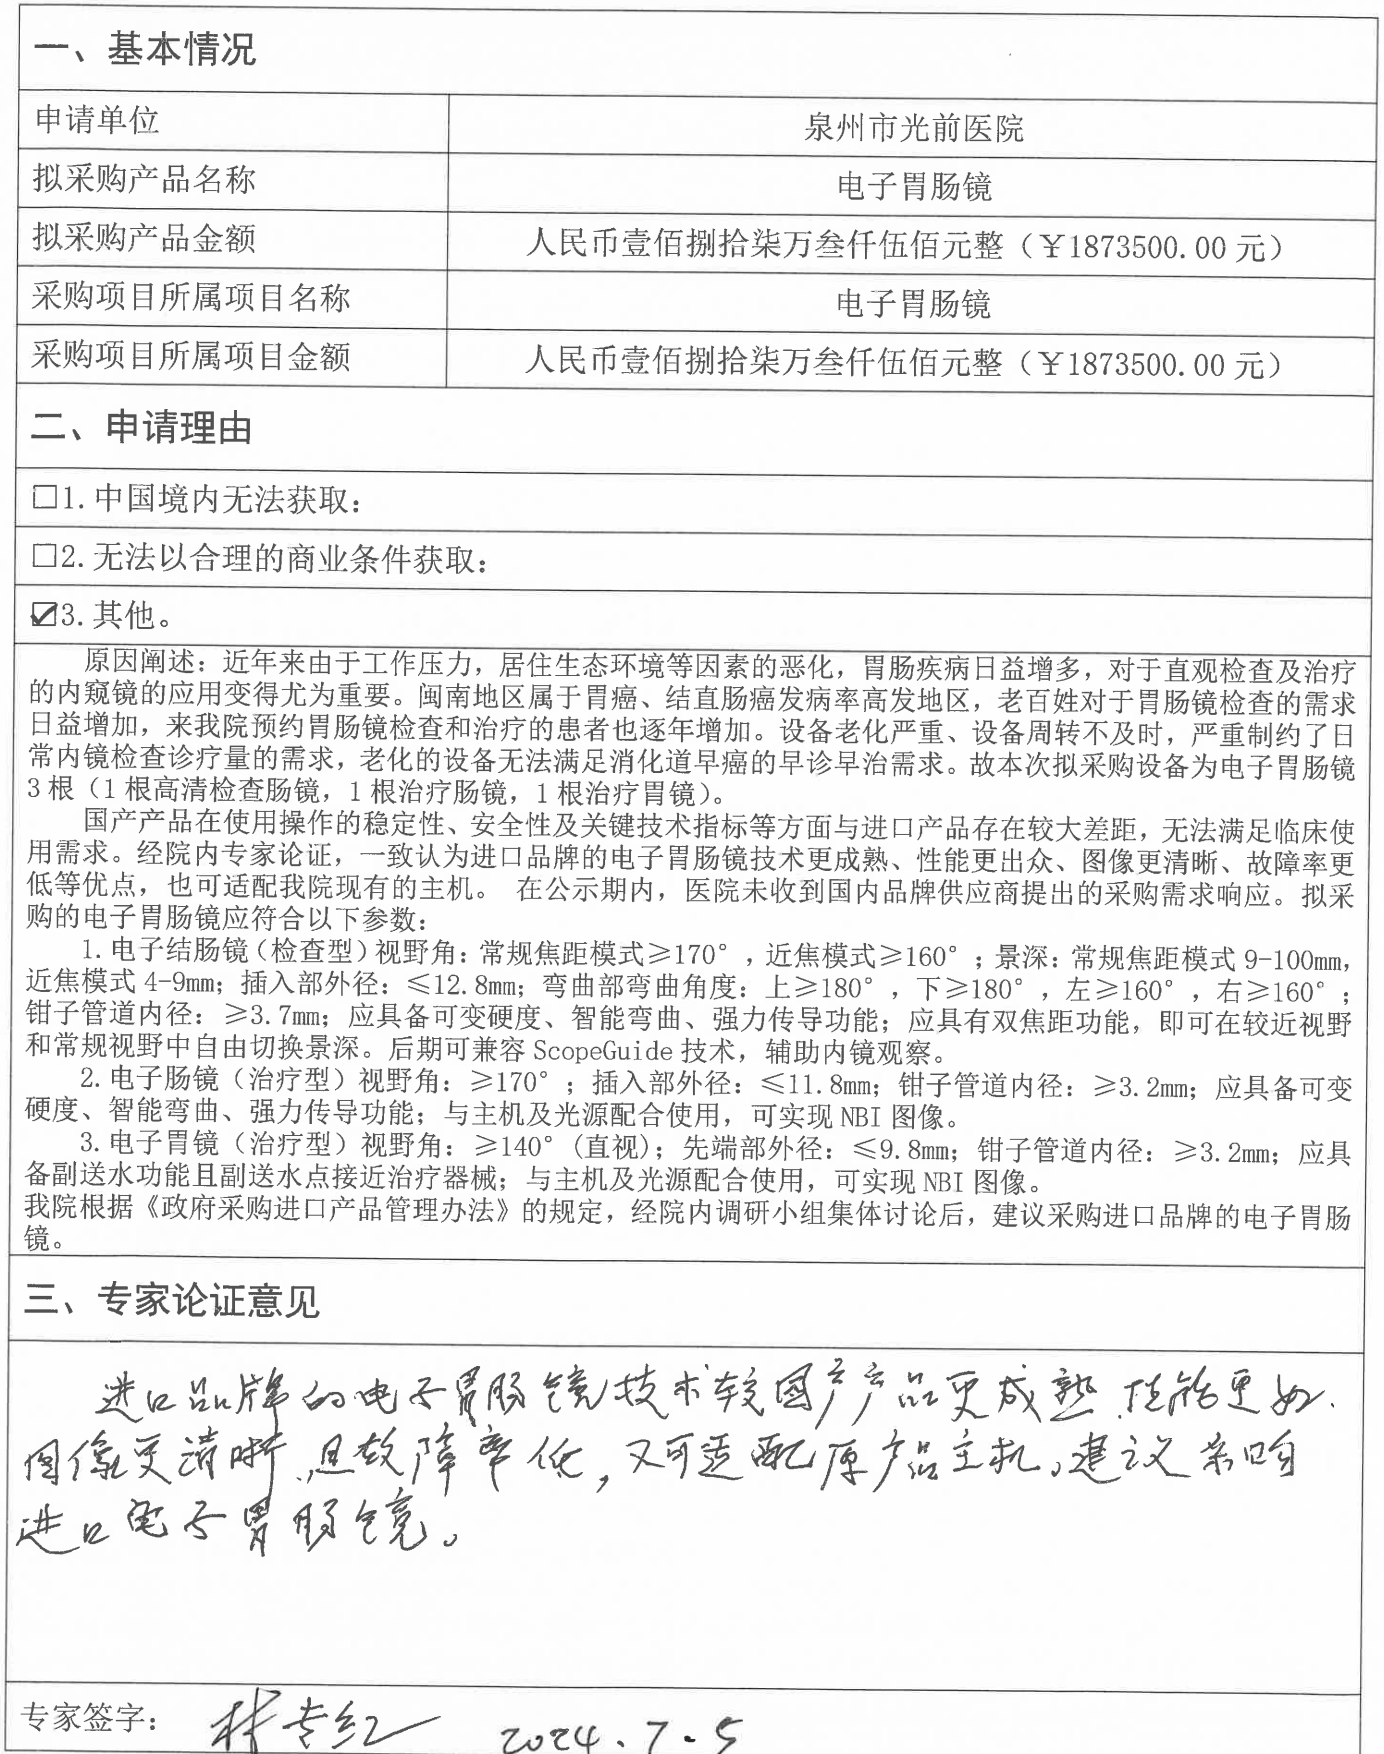 一、基本情况
申请单位 泉州市光前医院
拟采购产品名称 电子胃肠镜
拟采购产品金额 人民币壹佰捌拾柒万叁仟伍佰元整（￥1873500.00元）
采购项目所属项目名称 电子胃肠镜
采购项目所属项目金额 人民币壹佰捌拾柒万叁仟伍佰元整（￥1873500.00元）
二、申请理由
☐1.中国境内无法获取：
☐2.无法以合理的商业条件获取：
☑3.其他。
原因阐述：近年来由于工作压力，居住生态环境等因素的恶化，胃肠疾病日益增多，对于直观检查及治疗
的内窥镜的应用变得尤为重要。闽南地区属于胃癌、结直肠癌发病率高发地区，老百姓对于胃肠镜检查的需求
日益增加，来我院预约胃肠镜检查和治疗的患者也逐年增加。设备老化严重、设备周转不及时，严重制约了日
常内镜检查诊疗量的需求，老化的设备无法满足消化道早癌的早诊早治需求。故本次拟采购设备为电子胃肠镜
3根（1根高清检查肠镜，1根治疗肠镜，1根治疗胃镜）。
国产产品在使用操作的稳定性、安全性及关键技术指标等方面与进口产品存在较大差距，无法满足临床使
用需求。经院内专家论证，一致认为进口品牌的电子胃肠镜技术更成熟、性能更出众、图像更清晰、故障率更
低等优点，也可适配我院现有的主机。 在公示期内，医院未收到国内品牌供应商提出的采购需求响应。拟采
购的电子胃肠镜应符合以下参数：
1.电子结肠镜（检查型）视野角：常规焦距模式≥170°，近焦模式≥160°；景深：常规焦距模式9-100mm，
近焦模式4-9mm；插入部外径：≤12.8mm；弯曲部弯曲角度：上≥180°，下≥180°，左≥160°，右≥160°；
钳子管道内径：≥3.7mm；应具备可变硬度、智能弯曲、强力传导功能；应具有双焦距功能，即可在较近视野
和常规视野中自由切换景深。后期可兼容ScopeGuide技术，辅助内镜观察。
2.电子肠镜（治疗型）视野角：≥170°；插入部外径：≤11.8mm；钳子管道内径：≥3.2mm；应具备可变
硬度、智能弯曲、强力传导功能；与主机及光源配合使用，可实现NBI图像。
3.电子胃镜（治疗型）视野角：≥140°(直视)；先端部外径：≤9.8mm；钳子管道内径：≥3.2mm；应具
备副送水功能且副送水点接近治疗器械；与主机及光源配合使用，可实现NBI图像。
我院根据《政府采购进口产品管理办法》的规定，经院内调研小组集体讨论后，建议采购进口品牌的电子胃肠
镜。
三、专家论证意见
进口品牌的电子胃肠镜技术较国产产品更成熟、性能更好、
图像更清晰、且故障率低，又可适配原产品主机。建议采购
进口电子胃肠镜。
专家签字： 2024.7.5